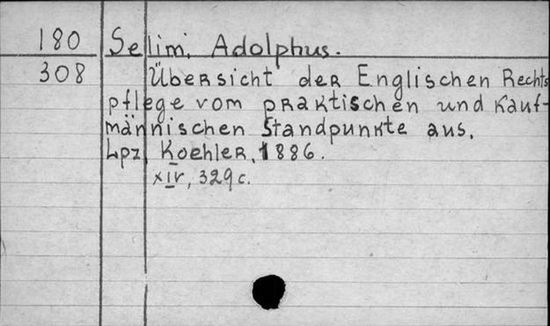 180 Selim, Adolphus.
308 Übersicht der Englischen Rechts
pflege vom praktischen und Kauf-
männischen Standpunkte aus.
Lpz, Koehler, 1886.
XIV, 329c.